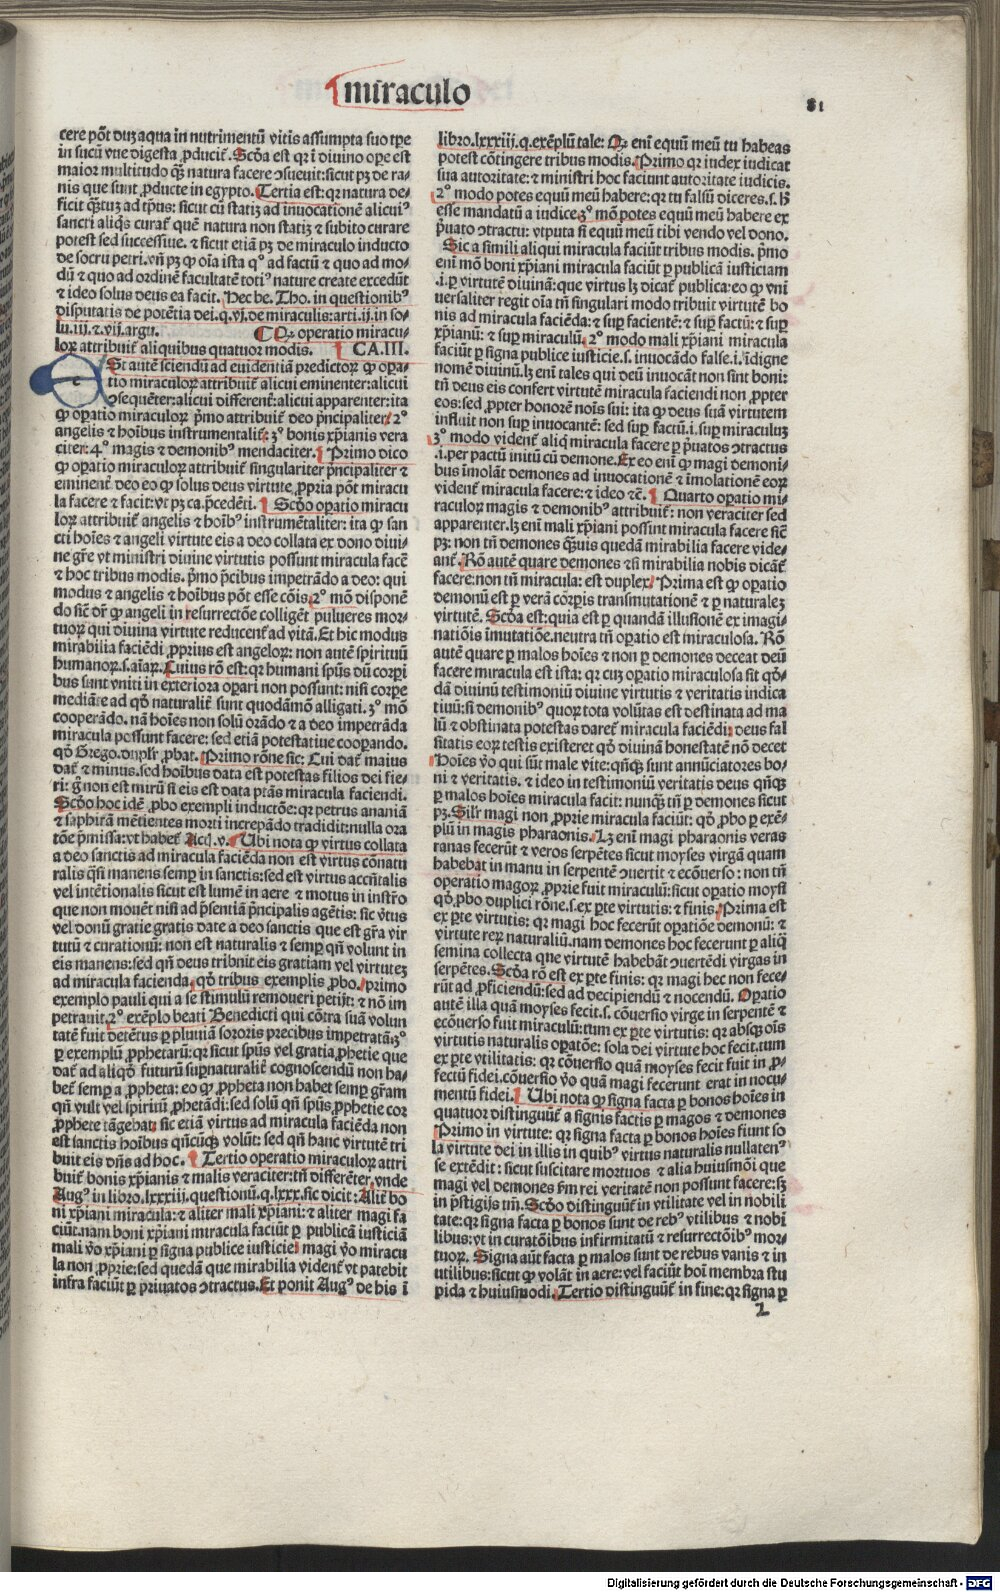 miraculo
81
cere põt duʒ aqua in nutrimentũ vitis assumpta suo tꝑe
in sucũ vue digesta ꝓduciť. Scḋa est qꝛ ĩ diuino oꝑe est
maior multitudo q̃ʒ natura facere ↄsueuit: sicut pʒ de ra-
nis que sunt ꝓducte in egypto. Tertia est: qꝛ natura de-
ficit q̃ʒtuʒ ad tp̃us: sicut cũ statiʒ ad inuocationẽ alicuiꝰ
sancti aliq̇s curať quẽ natura non statiʒ ⁊ subito curare
potest sed successiue. ⁊ sicut etiã pʒ de miraculo inducto
de socru petri. vñ pʒ ꝙ oĩa ista qº ad factũ ⁊ quo ad mo-
dũ ⁊ quo ad ordinẽ facultatẽ totiꝰ nature create excedũt
⁊ ideo solus deus ea facit. Hec be. Tho. in questionibꝰ
disputatis de potẽtia dei. q. vj. de miraculis: arti. ij. in so-
lu. iij. ⁊. vij. argu. ꝙ operatio miracu-
loꝝ attribuiť aliquibus quatuor modis. CA. III.
e St autẽ sciendũ ad euidentiã predictoꝝ ꝙ oꝑa-
tio miraculoꝝ attribuiť alicui eminenter: alicui
ↄsequẽter: alicui differenť: alicui apparenter: ita
ꝙ oꝑatio miraculoꝝ p̃mo attribuiť deo pñcipaliter: 2º
angelis ⁊ hoĩbus instrumentaliť: 3º bonis xp̃ianis vera
citer: 4º magis ⁊ demonibꝰ mendaciter. Primo dico
ꝙ oꝑatio miraculoꝝ attribuiť singulariter pñcipaliter ⁊
eminenť deo eo ꝙ solus deus virtute ꝓpria põt miracu
la facere ⁊ facit: vt pʒ ca. p̃cedẽti. Scḋo oꝑatio miracu
loꝝ attribuiť angelis ⁊ hoĩbꝰ instrumẽtaliter: ita ꝙ san
cti hoĩes ⁊ angeli virtute eis a deo collata ex dono diui-
ne gr̃e vt ministri diuine virtutis possunt miracula facẽ
⁊ hoc tribus modis. p̃mo p̃cibus impetrãdo a deo: qui
modus ⁊ angelis ⁊ hoĩbus põt esse cõis. 2º mõ disponẽ
do sicť dr̃ ꝙ angeli in resurrectõe colligẽt pulueres mor-
tuoꝝ qui diuina virtute reducenť ad vitã. Et hic modus
mirabilia faciẽdi ꝓprius est angeloꝝ: non autẽ spirituũ
humanoꝝ. s. aĩaꝝ. Cuius rõ est: qꝛ humani sp̃us dũ corpi
bus sunt vniti in exteriora oꝑari non possunt: nisi corpe
mediãte ad qḋ naturaliť sunt quodãmõ alligati. 3º mõ
cooperãdo. nã hoĩes non solũ orãdo ⁊ a deo impetrãda
miracula possunt facere: sed etiã potestatiue cooꝑando.
qḋ Grego. dupľr ꝓbat. Primo rõne sic: Cui dať maius
dať ⁊ minus. sed hoĩbus data est potestas filios dei fie-
ri: g̃ non est mirũ si eis est data ptãs miracula faciendi.
Scḋo hoc idẽ ꝓbo exempli inductõe: qꝛ petrus ananiã
⁊ saphirã mẽtientes morti increpãdo tradidit: nulla ora
tõe p̃missa: vt habeť Acť. v. Ubi nota ꝙ virtus collata
a deo sanctis ad miracula faciẽda non est virtus cõnatu
ralis qñ manens semp̱ in sanctis: sed est virtus accñtalis
vel intẽtionalis sicut est lumẽ in aere ⁊ motus in instr̃o
que non mouẽt nisi ad p̃sentiã pñcipalis agẽtis: sic ṽtus
vel donũ gratie gratis date a deo sanctis que est gr̃a vir
tutũ ⁊ curationũ: non est naturalis ⁊ semp̱ qñ volunt in
eis manens: sed qñ deus tribuit eis gratiam vel virtuteʒ
ad miracula facienda. qḋ tribus exemplis ꝓbo. primo
exemplo pauli qui a se stimulũ remoueri petijt: ⁊ nõ im
petrauit. 2º exẽplo beati Benedicti qui cõtra suã volun
tatẽ fuit detẽtus ꝑ pluuiã sororis precibus impetratã. 3º
ꝑ exemplũ ꝓphetarũ: qꝛ sicut sp̃us vel gratia ꝓphetie que
dať ad aliqḋ futurũ sup̱naturaliť cognoscendũ non ha-
beť semp̱ a ꝓpheta: eo ꝙ ꝓpheta non habet semp̱ gr̃am
qñ vult vel spiritũ ꝓphetãdi: sed solũ qñ sp̃us ꝓphetie cor
ꝓphete tãgebat: sic etiã virtus ad miracula faciẽda non
est sanctis hoĩbus qñcũqʒ volũt: sed qñ hanc virtutẽ tri
buit eis dñs ad hoc. Tertio operatio miraculoꝝ attri
buiť bonis xp̃ianis ⁊ malis veraciter: tñ differẽter. vnde
Augꝰ in libro. lxxxiij. questionũ. q. lxxx. sic dicit: Aliť bo
ni xp̃iani miracula: ⁊ aliter mali xp̃iani: ⁊ aliter magi fa
ciũt. nam boni xp̃iani miracula faciũt ꝑ publicã iusticiã
mali ṽo xp̃iani ꝑ signa publice iusticie: magi ṽo miracu
la non ꝓprie: sed quedã que mirabilia videnť vt patebit
infra faciũt ꝑ priuatos ↄtractus. Et ponit Augꝰ de his ĩ
libro. lxxxiij. q. exẽplũ tale: Qꝛ enĩ equũ meũ tu habeas
potest cõtingere tribus modis. Primo qꝛ iudex iudicat
sua autoritate: ⁊ ministri hoc faciunt autoritate iudicis.
2º modo potes equũ meũ habere: qꝛ tu falsũ diceres. s. ħ
esse mandatũ a iudice. 3º mõ potes equũ meũ habere ex
p̃uato ↄtractu: vtputa si equũ meũ tibi vendo vel dono.
Sic a simili aliqui miracula faciũt tribus modis. p̃mo
enĩ mõ boni xp̃iani miracula faciũt ꝑ publicã iusticiam
.i. ꝑ virtutẽ diuinã: que virtus lʒ dicať publica: eo ꝙ vni
uersaliter regit oĩa tñ singulari modo tribuit virtutẽ bo
nis ad miracula faciẽda: ⁊ sup̱ facientẽ: ⁊ sup̱ factũ: ⁊ sup̱
xp̃ianũ: ⁊ sup̱ miraculũ. 2º modo mali xp̃iani miracula
faciũt ꝑ signa publice iusticie. s. inuocãdo false. i. ĩdigne
nomẽ diuinũ. lʒ enĩ tales qui deũ inuocãt non sint boni:
tñ deus eis confert virtutẽ miracula faciendi non ꝓpter
eos: sed ꝓpter honorẽ noĩs sui: ita ꝙ deus suã virtutem
influit non sup̱ inuocantẽ: sed sup̱ factũ. i. sup̱ miraculuʒ
3º modo videnť aliq̇ miracula facere ꝑ p̃uatos ↄtractus
.i. per pactũ initũ cũ demone. Ex eo enĩ ꝙ magi demoni-
bus ĩmolãt demones ad inuocationẽ ⁊ ĩmolationẽ eoꝝ
videnť miracula facere: ⁊ ideo ⁊č. Quarto oꝑatio mi-
raculoꝝ magis ⁊ demonibꝰ attribuiť: non veraciter sed
apparenter. lʒ enĩ mali xp̃iani possint miracula facere sicť
pʒ: non tñ demones q̃ʒuis quedã mirabilia facere vide-
anť. Rõ autẽ quare demones ⁊si mirabilia nobis dicãť
facere: non tñ miracula: est duplex. Prima est ꝙ oꝑatio
demonũ est ꝑ verã corp̱is transmutationẽ ⁊ ꝑ naturaleʒ
virtutẽ. Scḋa est: quia est ꝑ quandã illusionẽ ex imagi-
natiõis ĩmutatiõe. neutra tñ oꝑatio est miraculosa. Rõ
autẽ quare ꝑ malos hoĩes ⁊ non ꝑ demones deceat deũ
facere miracula est ista: qꝛ cuʒ oꝑatio miraculosa sit qḋ-
dã diuinũ testimoniũ diuine virtutis ⁊ veritatis indica
tiuũ: si demonibꝰ quoꝝ tota volũtas est destinata ad ma
lũ ⁊ obstinata potestas dareť miracula faciẽdi: deus fal
sitatis eoꝝ testis existeret qḋ diuinã honestatẽ nõ decet
Hoĩes ṽo qui sũt male vite: qñqʒ sunt annũciatores bo-
ni ⁊ veritatis. ⁊ ideo in testimoniũ veritatis deus qñqʒ
ꝑ malos hoĩes miracula facit: nunqʒ tñ ꝑ demones sicut
pʒ. Siľr magi non ꝓprie miracula faciũt: qḋ ꝓbo ꝑ exẽ-
plũ in magis pharaonis. Lʒ enĩ magi pharaonis veras
ranas fecerũt ⁊ veros serpẽtes sicut moyses virgã quam
habebat in manu in serpentẽ ↄuertit ⁊ ecõuerso: non tñ
operatio magoꝝ ꝓprie fuit miraculũ: sicut oꝑatio moysi
qḋ ꝓbo duplici rõne. s. ex ꝑte virtutis: ⁊ finis. Prima est
ex ꝑte virtutis: qꝛ magi hoc fecerũt oꝑatiõe demonũ: ⁊
virtute reꝝ naturaliũ. nam demones hoc fecerunt ꝑ aliq̇
semina collecta que virtutẽ habebãt ↄuertẽdi virgas in
serpẽtes. Scḋa rõ est ex ꝑte finis: qꝛ magi hec non fece-
rũt ad ꝓficiendũ: sed ad decipiendũ ⁊ nocendũ. Oꝑatio
autẽ illa quã moyses fecit. s. cõuersio virge in serpentẽ ⁊
ecõuerso fuit miraculũ: tum ex ꝑte virtutis: qꝛ absqʒ oĩs
virtutis naturalis oꝑatõe: sola dei virtute hoc fecit. tum
ex ꝑte vtilitatis: qꝛ cõuersio quã moyses fecit fuit in ꝓ-
fectũ fidei. cõuersio ṽo quã magi fecerunt erat in nocu-
mentũ fidei. Ubi nota ꝙ signa facta ꝑ bonos hoĩes in
quatuor distinguũť a signis factis ꝑ magos ⁊ demones
Primo in virtute: qꝛ signa facta ꝑ bonos hoĩes fiunt so
la virtute dei in illis in quibꝰ virtus naturalis nullatenꝰ
se extẽdit: sicut suscitare mortuos ⁊ alia huiusmõi que
magi vel demones ẜm rei veritatẽ non possunt facere: sʒ
in p̃stigijs tm̃. Scḋo distinguũť in vtilitate vel in nobili
tate: qꝛ signa facta ꝑ bonos sunt de rebꝰ vtilibus ⁊ nobi
libus: vt in curatõibus infirmitatũ ⁊ resurrectõibꝰ mor-
tuoꝝ. Signa aũt facta ꝑ malos sunt de rebus vanis ⁊ in
utilibus: sicut ꝙ volãt in aere: vel faciũt hoĩ membra stu
pida ⁊ huiusmodi. Tertio distinguũť in fine: qꝛ signa ꝑ
Digitalisierung gefördert durch die Deutsche Forschungsgemeinschaft - DFG